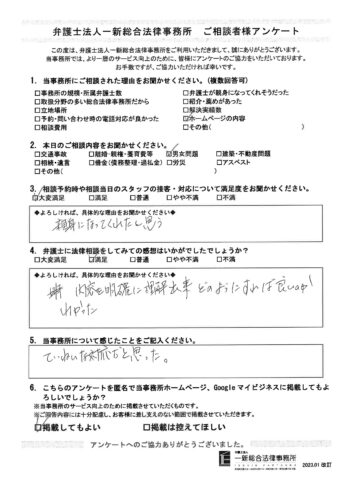 弁護士法人一新総合法律事務所　ご相談者様アンケート
この度は、弁護士法人一新総合法律事務所をご利用いただきまして、誠にありがとうございます。
当事務所では、より一層のサービス向上のために、皆様にアンケートのご協力をいただいております。
お手数ですが、ご協力いただければ幸いです。
1. 当事務所にご相談された理由をお聞かせください。（複数回答可）
□事務所の規模・所属弁護士数　□弁護士が親身になってくれそうだった
□取扱分野の多い総合法律事務所だから　□紹介・薦めがあった
□立地場所　□解決実績数
□予約・問い合わせ時の電話対応が良かった　☑ホームページの内容
□相談費用　□その他（　　）
2. 本日のご相談内容をお聞かせください。
□交通事故　□離婚・親権・養育費等　☑男女問題　□建築・不動産問題
□相続・遺言　□借金（債務整理・過払金）　□労災　□アスベスト
□その他（　　）
3. 相談予約時や相談当日のスタッフの接客・対応について満足度をお聞かせください。
☑大変満足　□満足　□普通　□やや不満　□不満
◆よろしければ、具体的な理由をお聞かせください◆
親身になってくれたと思う
4. 弁護士に法律相談をしてみての感想はいかがでしたでしょうか？
□大変満足　☑満足　□普通　□やや不満　□不満
◆よろしければ、具体的な理由をお聞かせください◆
内容を明確に理解出来 どのようにすれば良いのか
わかった
5. 当事務所について感じたことをご記入ください。
ていねいな対応だと思った。
6. こちらのアンケートを匿名で当事務所ホームページ、Googleマイビジネスに掲載してもよ
ろしいでしょうか？
※当事務所のサービス向上のために掲載させていただくものです。
※ご回答内容には十分配慮し、お客様に差し支えのない範囲で掲載させていただきます。
☑掲載してもよい　□掲載は控えてほしい
アンケートへのご協力ありがとうございました。
弁護士法人
一新総合法律事務所
2023.01 改訂